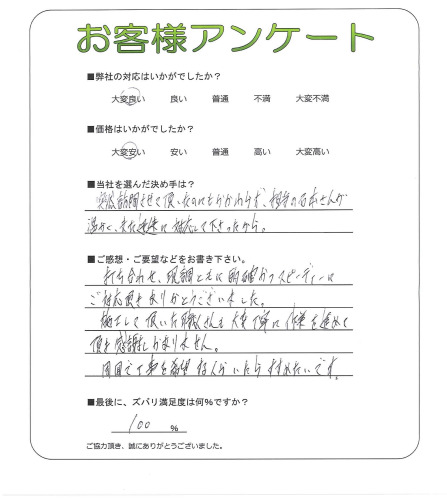 お客様アンケート
■弊社の対応はいかがでしたか？
大変良い 良い 普通 不満 大変不満
■価格はいかがでしたか？
大変安い 安い 普通 高い 大変高い
■当社を選んだ決め手は？
突然訪問させて頂いたのにもかかわらず、担当の石本さんが
温かく、また迅速に対応して下さったから。
■ご感想・ご要望などをお書き下さい。
打ち合わせ、現調ともに明確かつスピーディーに
ご対応頂きありがとうございました。
施工して頂いた職人さんも大変丁寧に作業を進めて
頂き感謝しかありません。
周囲で工事を希望する人がいたらすすめたいです。
■最後に、ズバリ満足度は何％ですか？
100 ％
ご協力頂き、誠にありがとうございました。